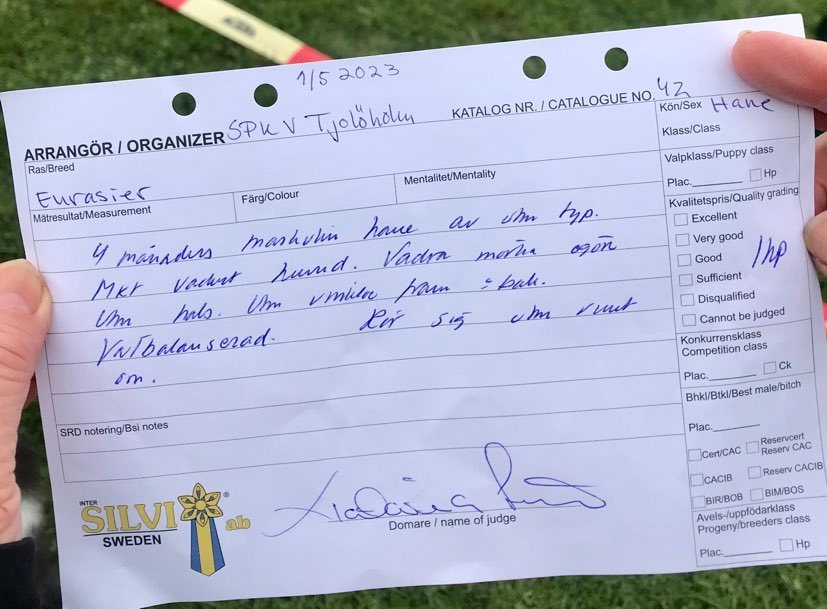 1/5 2023
ARRANGÖR / ORGANIZER SPK V Tjolöholm
KATALOG NR. / CATALOGUE NO. 42
Ras/Breed
Eurasier
Kön/Sex Hane
Klass/Class
Mätresultat/Measurement
Färg/Colour
Mentalitet/Mentality
4 månaders maskulin hane av utm typ.
Mkt vackert huvud. Vackra mörka ögon
Utm hals. Utm vinklar fram o bak.
Välbalanserad. Rör sig utm runt
om.
SRD notering/Bsi notes
INTER
SILVI ® ab
SWEDEN
Domare / name of judge
Valpklass/Puppy class
Plac. Hp
Kvalitetspris/Quality grading
Excellent
Very good
Good
Sufficient
Disqualified
Cannot be judged
1hp
Konkurrensklass
Competition class
Plac. Ck
Bhkl/Btkl/Best male/bitch
Plac.
Cert/CAC
Reservcert
Reserv CAC
CACIB
Reserv CACIB
BIR/BOB
BIM/BOS
Avels-/uppfödarklass
Progeny/breeders class
Plac. Hp